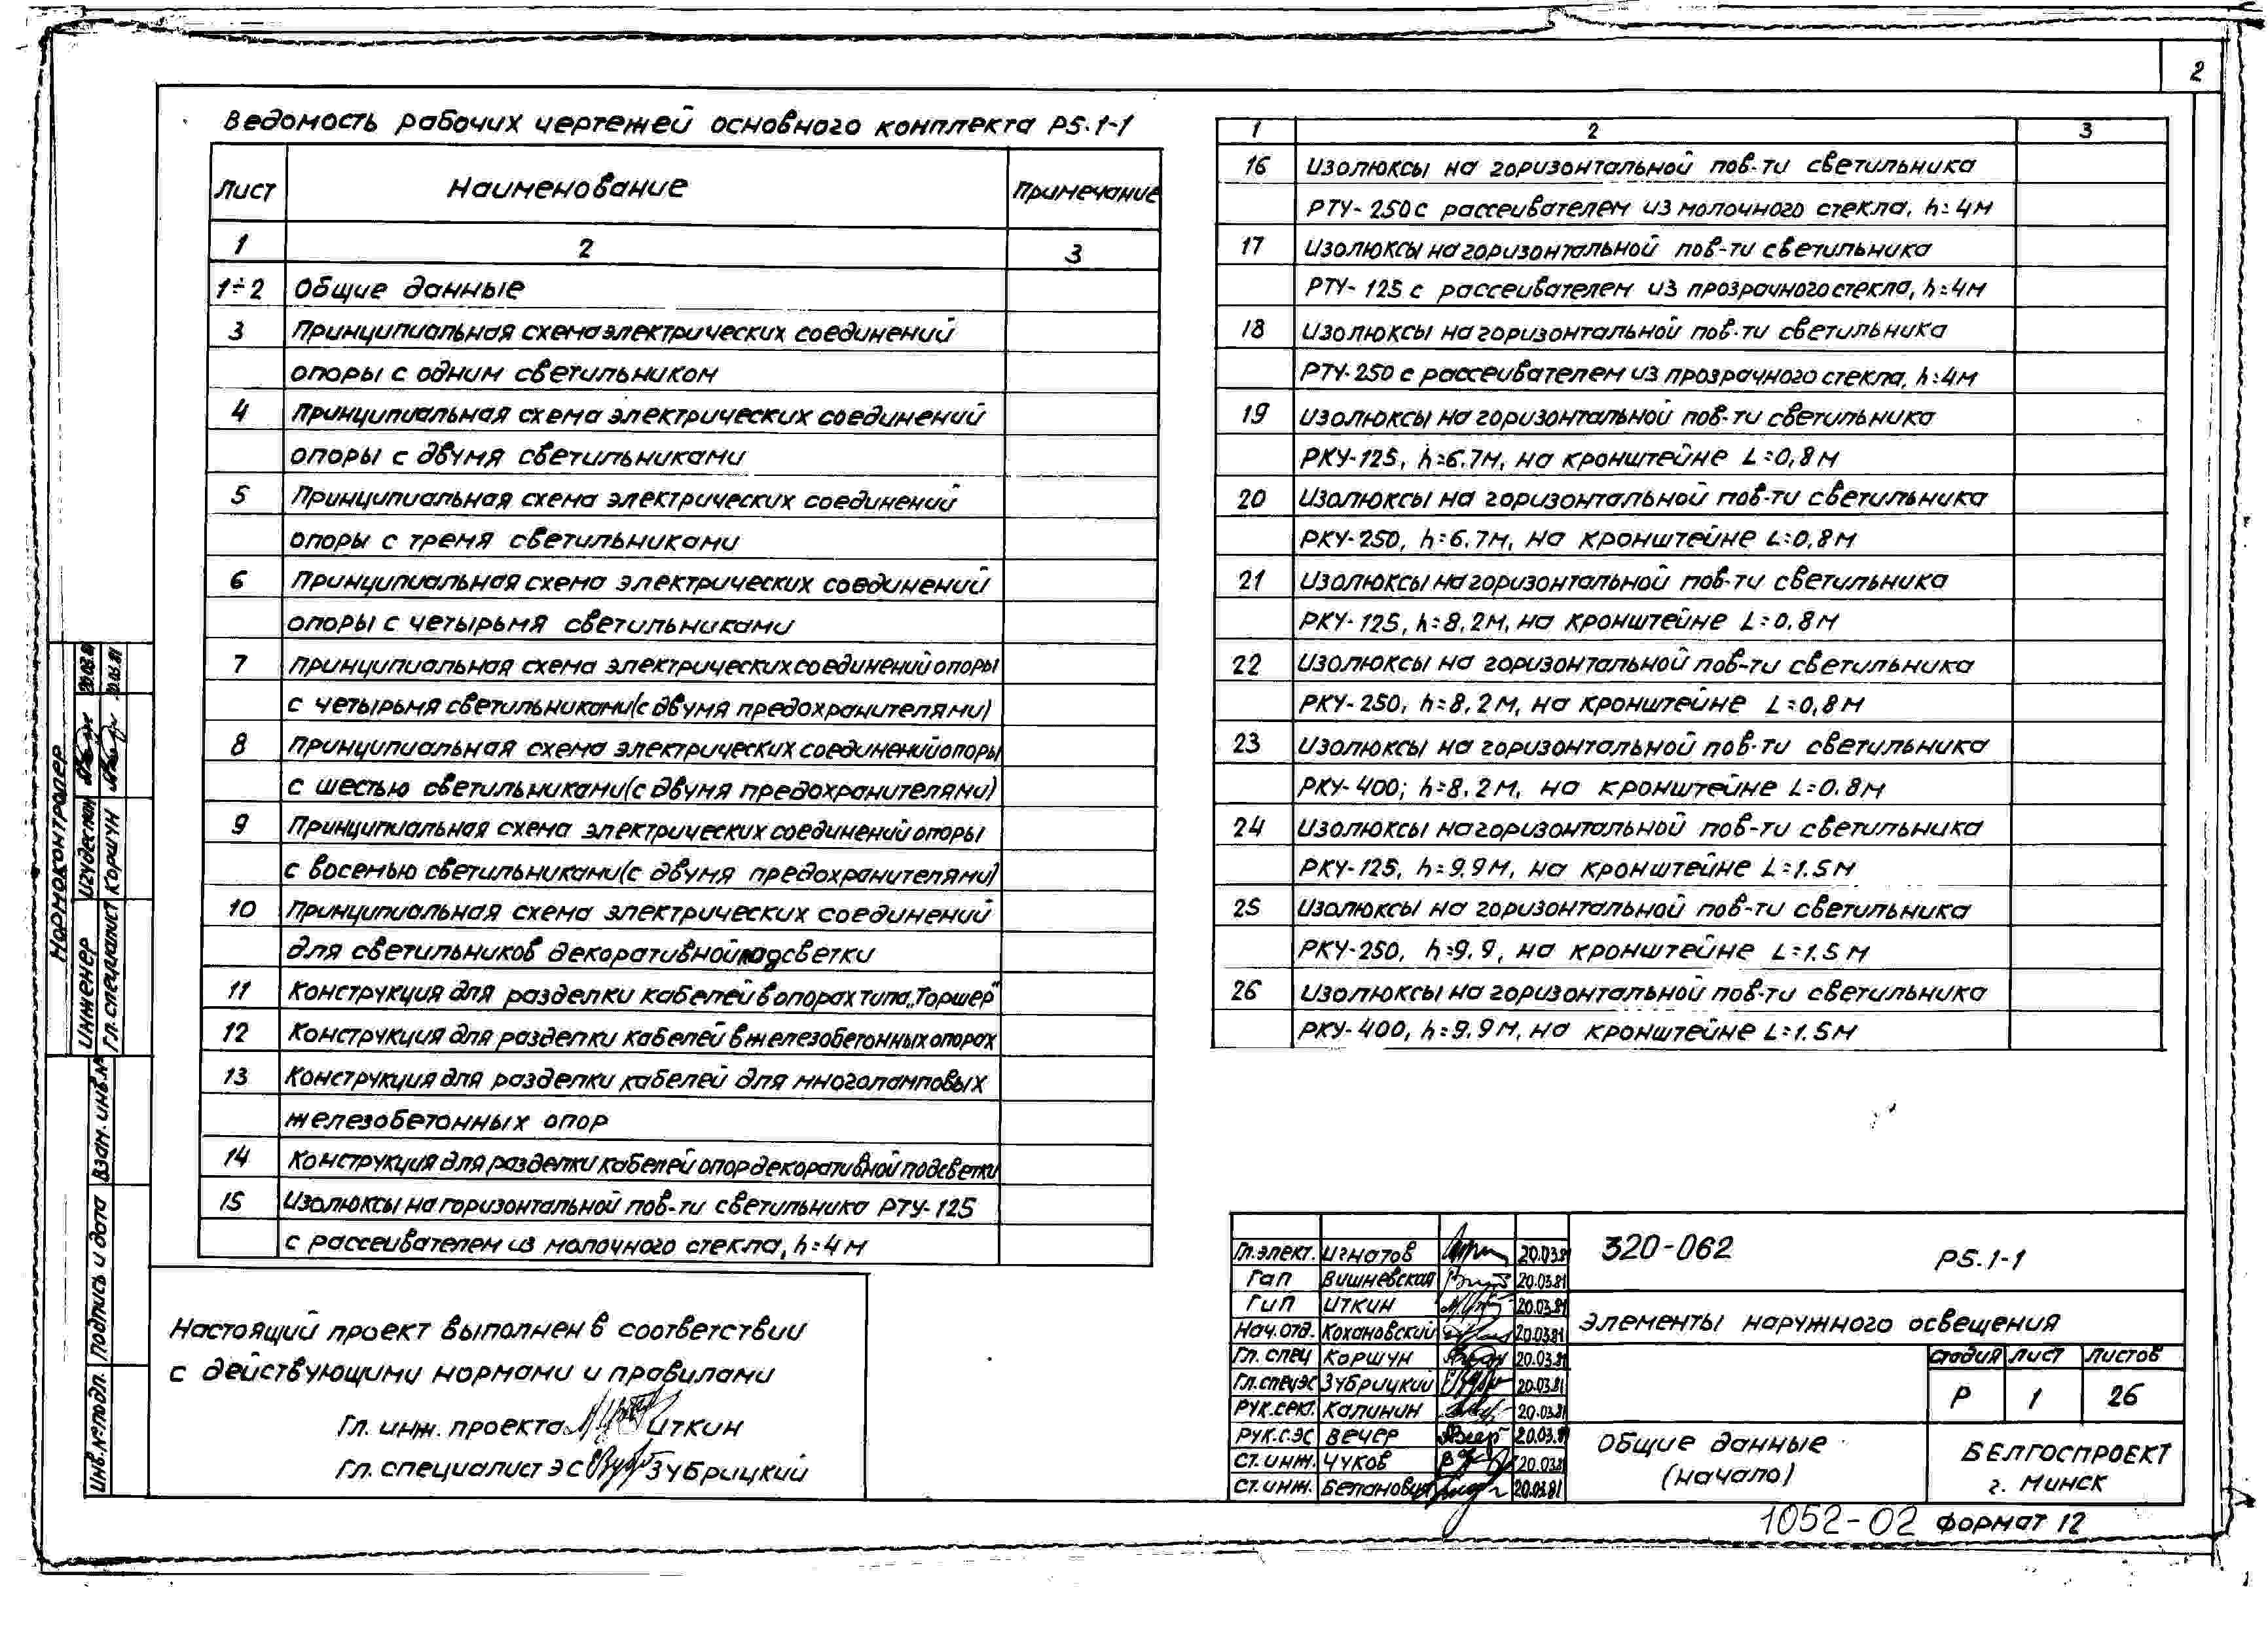 2
Ведомость рабочих чертежей основного комплекта Р5.1-1
Лист Наименование Примечание
1 2 3
1÷2 Общие данные
3 Принципиальная схема электрических соединений
опоры с одним светильником
4 Принципиальная схема электрических соединений
опоры с двумя светильниками
5 Принципиальная схема электрических соединений
опоры с тремя светильниками
6 Принципиальная схема электрических соединений
опоры с четырьмя светильниками
7 Принципиальная схема электрических соединений опоры
с четырьмя светильниками (с двумя предохранителями)
8 Принципиальная схема электрических соединений опоры
с шестью светильниками (с двумя предохранителями)
9 Принципиальная схема электрических соединений опоры
с восемью светильниками (с двумя предохранителями)
10 Принципиальная схема электрических соединений
для светильников декоративной подсветки
11 Конструкция для разделки кабелей в опорах типа „Торшер"
12 Конструкция для разделки кабелей в железобетонных опорах
13 Конструкция для разделки кабелей для многоламповых
железобетонных опор
14 Конструкция для разделки кабелей опор декоративной подсветки
15 Изолюксы на горизонтальной пов-ти светильника РТУ-125
с рассеивателем из молочного стекла, h=4м
1 2 3
16 Изолюксы на горизонтальной пов-ти светильника
РТУ-250 с рассеивателем из молочного стекла, h=4м
17 Изолюксы на горизонтальной пов-ти светильника
РТУ-125 с рассеивателем из прозрачного стекла, h=4м
18 Изолюксы на горизонтальной пов-ти светильника
РТУ-250 с рассеивателем из прозрачного стекла, h=4м
19 Изолюксы на горизонтальной пов-ти светильника
РКУ-125, h=6.7м, на кронштейне L=0,8м
20 Изолюксы на горизонтальной пов-ти светильника
РКУ-250, h=6.7м, на кронштейне L=0,8м
21 Изолюксы на горизонтальной пов-ти светильника
РКУ-125, h=8.2м, на кронштейне L=0.8м
22 Изолюксы на горизонтальной пов-ти светильника
РКУ-250, h=8,2м, на кронштейне L=0,8м
23 Изолюксы на горизонтальной пов-ти светильника
РКУ-400; h=8.2м, на кронштейне L=0.8м
24 Изолюксы на горизонтальной пов-ти светильника
РКУ-125, h=9.9м, на кронштейне L=1.5м
25 Изолюксы на горизонтальной пов-ти светильника
РКУ-250, h=9.9, на кронштейне L=1.5м
26 Изолюксы на горизонтальной пов-ти светильника
РКУ-400, h=9.9м, на кронштейне L=1.5м
Настоящий проект выполнен в соответствии
с действующими нормами и правилами
Гл. инж. проекта Иткин
Гл. специалист ЭС Зубрицкий
Нормоконтролер
Инженер 20.03.81
Гл. специалист Коршун 20.03.81
Взам. инв.№
Подпись и дата
Инв.№подл.
Гл.элект. Игнатов 20.03.81
Гап Вишневская 20.03.81
Гип Иткин 20.03.81
Нач.отд. Кохановский 20.03.81
Гл. спец Коршун 20.03.81
Гл.спецЭС Зубрицкий 20.03.81
Рук.сект. Калинин 20.03.81
Рук.с.ЭС Вечер 20.03.81
Ст.инж. Чуков 20.03.81
Ст.инж. 20.03.81
320-062 Р5.1-1
Элементы наружного освещения
Стадия Лист Листов
Р 1 26
Общие данные
(начало)
БЕЛГОСПРОЕКТ
г. Минск
1052-02 Формат 12